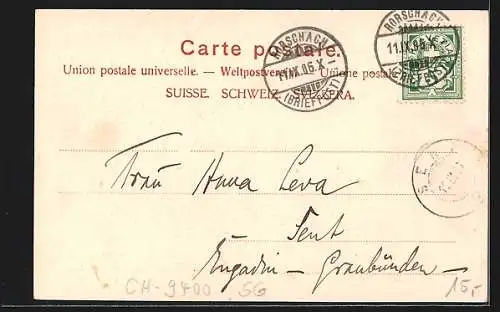 Carte postale.
Union postale universelle. — Weltpostverein. — Unione postale
SUISSE. SCHWEIZ. SVIZZERA.
RORSCHACH
11.IX.05.X
(BRIEFEXP.)
RORSCHACH
11.IX.05.X
(BRIEFEXP.)
Frau Anna Leva
Sent
Engadin – Graubünden –
CH-9400 SG
15,-